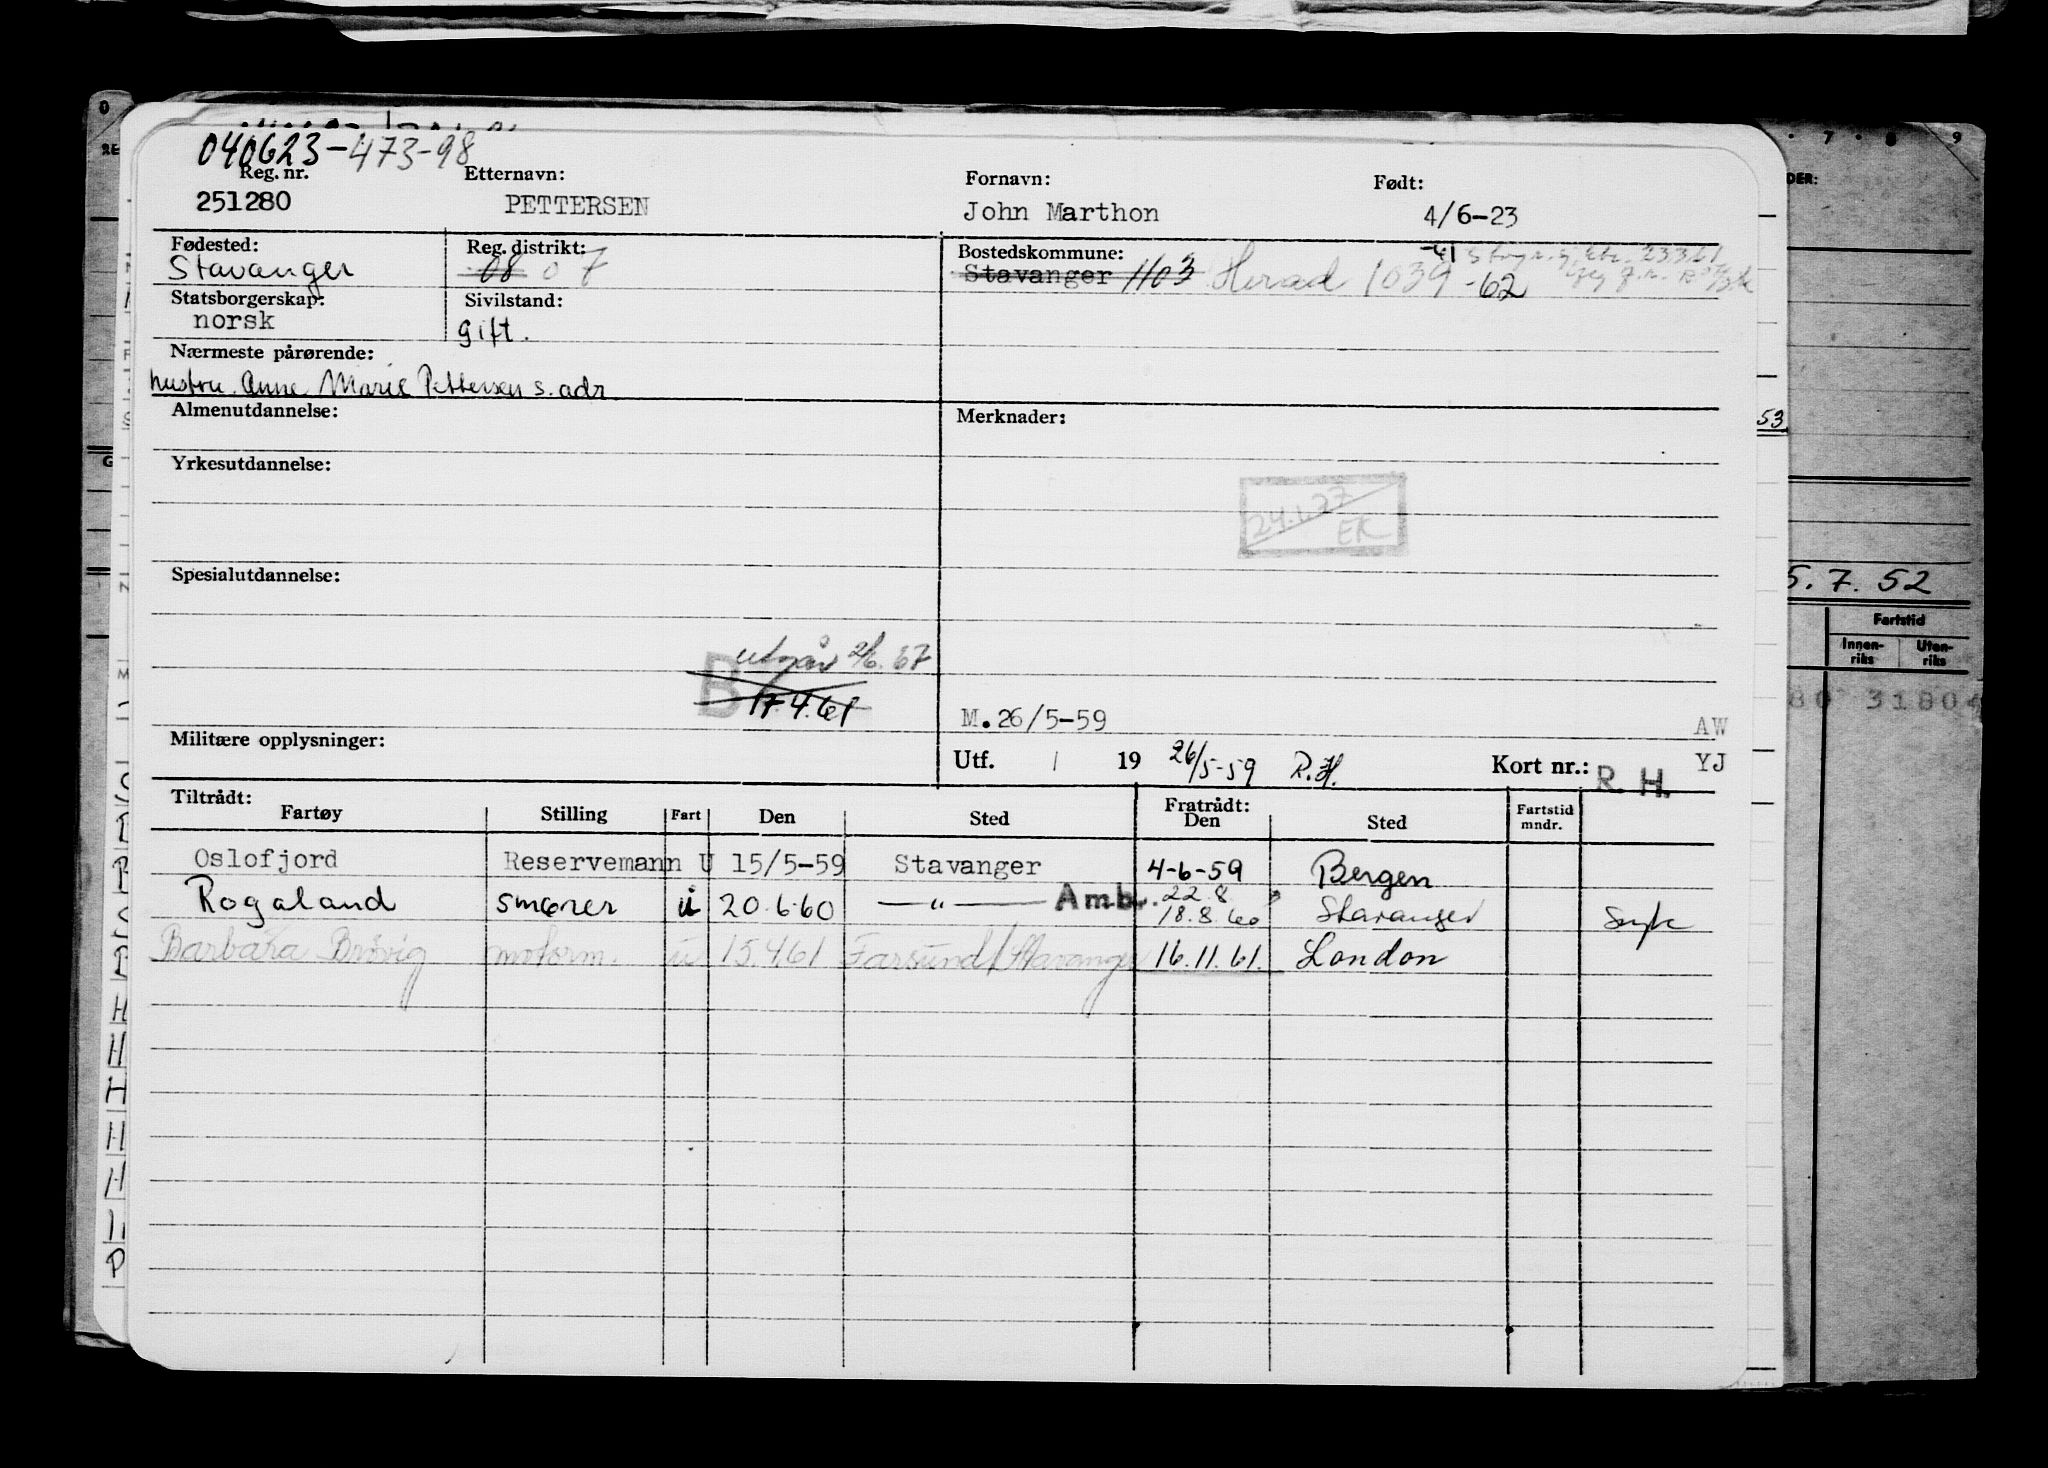 040623-473-98
Reg. nr. Etternavn: Fornavn: Født:
251280 PETTERSEN John Marthon 4/6-23
Fødested: Reg. distrikt: Bostedskommune:
Stavanger 08 07 Stavanger 1103 Herad 1039 -62
Statsborgerskap: Sivilstand:
norsk gift.
Nærmeste pårørende:
hustru. Anne Marie Pettersen s. adr.
Almenutdannelse: Merknader:
Yrkesutdannelse:
24.1.27
EK
Spesialutdannelse:
utgår 2/6.67
B 17.4.61
M.26/5-59 AW
Militære opplysninger: Utf. / 19 26/5-59 R.H. Kort nr.: R. H. YJ
Tiltrådt: Fratrådt:
Fartøy Stilling Fart Den Sted Den Sted Fartstid mndr.
Oslofjord Reservemann U 15/5-59 Stavanger 4-6-59 Bergen
Rogaland smører u 20.6.60 —"— Amb. 22.8. 18.8.60 Stavanger Syk
Barbara Brøvig motorm. u 15.4.61 Farsund/Stavanger 16.11.61. London
7 8 9
DER:
53
5.7.52
Fartstid
Innen-riks Uten-riks
80 31804